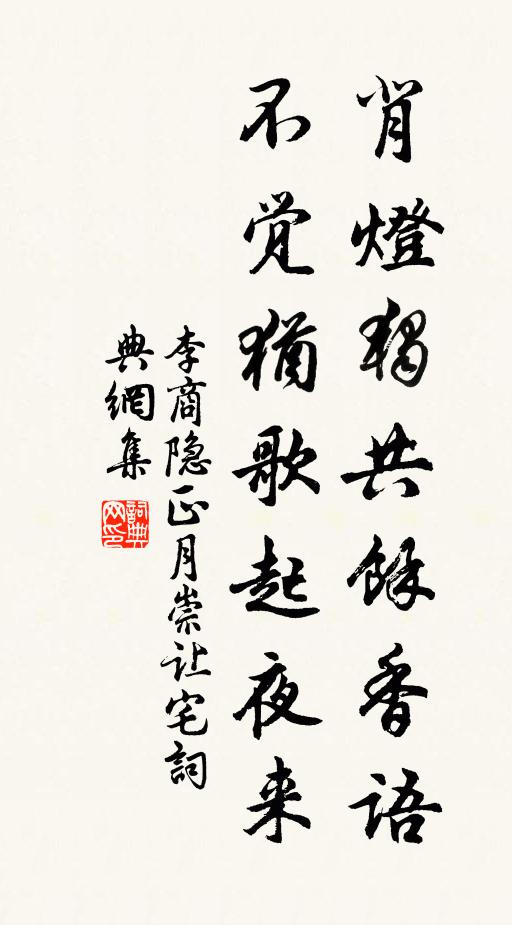 背燈独共餘香語
不覚猶歌起夜来
李商隐正月崇让宅詞
典網集
詞典网印